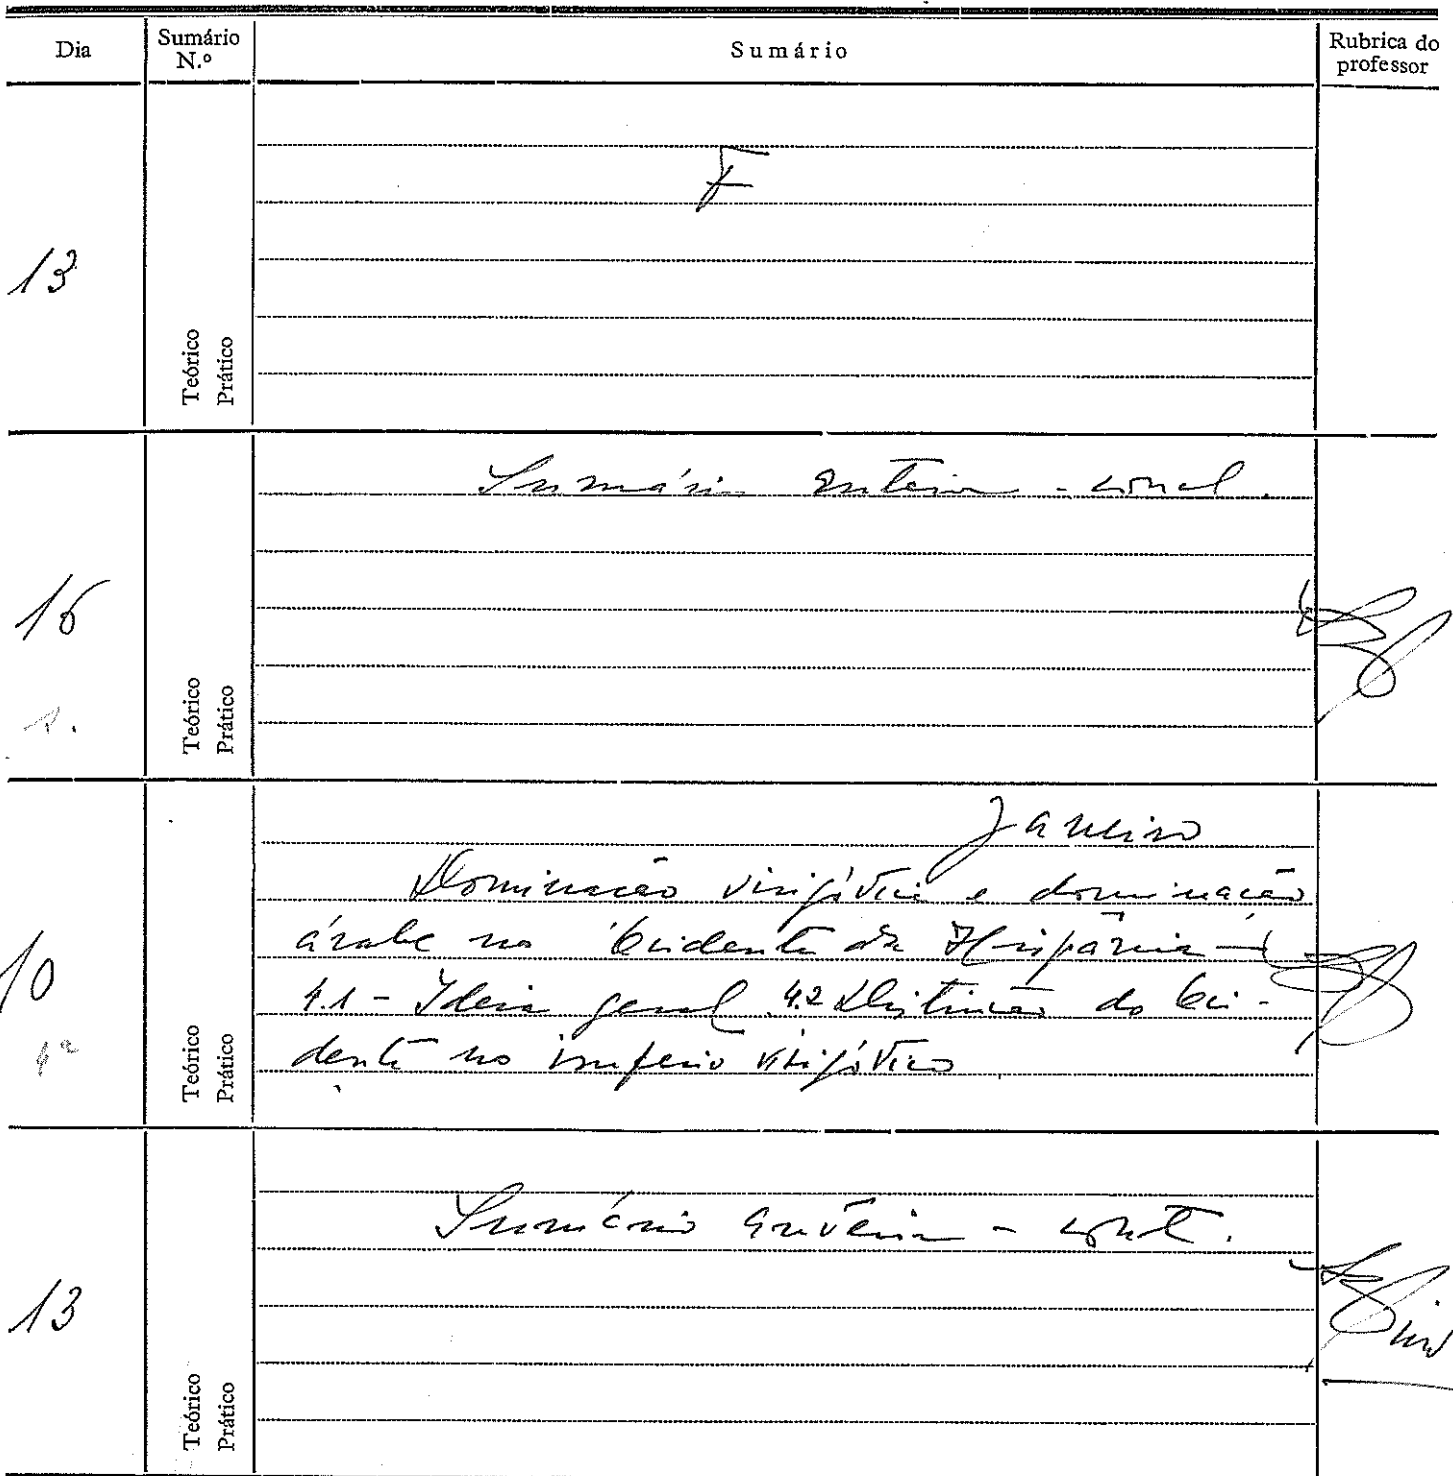 Dia
Sumário N.º
Sumário
Rubrica do professor
F
13
Teórico
Prático
Sumário anterior - concl.
16
Teórico
Prático
Janeiro
Dominação visigótica e dominação
árabe no Ocidente da Hispânia -
4.1 - Ideia geral 4.2 Distinção do Oci-
dente no império visigótico
10
4ª
Teórico
Prático
Sumário anterior - cont.
13
Teórico
Prático